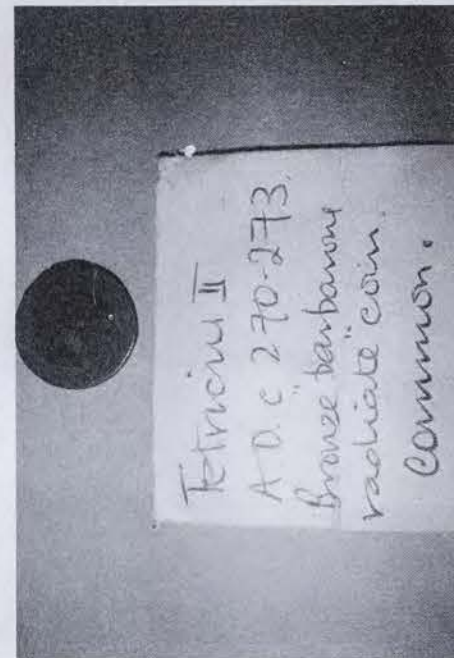 Tetricus II
A.D. c 270-273.
Bronze "barbarous
radiate" coin.
common.